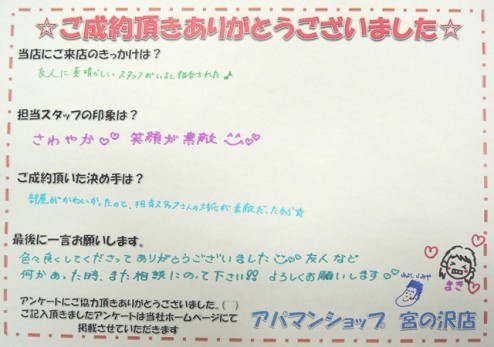 ☆ご成約頂きありがとうございました☆
当店にご来店のきっかけは？
友人に素晴らしいスタッフがいると紹介された♪
担当スタッフの印象は？
さわやか♡♡ 笑顔が素敵 ♡♡
ご成約頂いた決め手は？
部屋がかわいかったのと、担当スタッフさんの対応が素敵だったから☆
最後に一言お願いします。
色々良くしてくださってありがとうございました♡♡ 友人など
何かあった時、また相談にのって下さい!! よろしくお願いします♡♡
まき
アンケートにご協力頂きありがとうございました。(^^)
ご記入頂きましたアンケートは当社ホームページにて
掲載させていただきます
アパマンショップ 宮の沢店